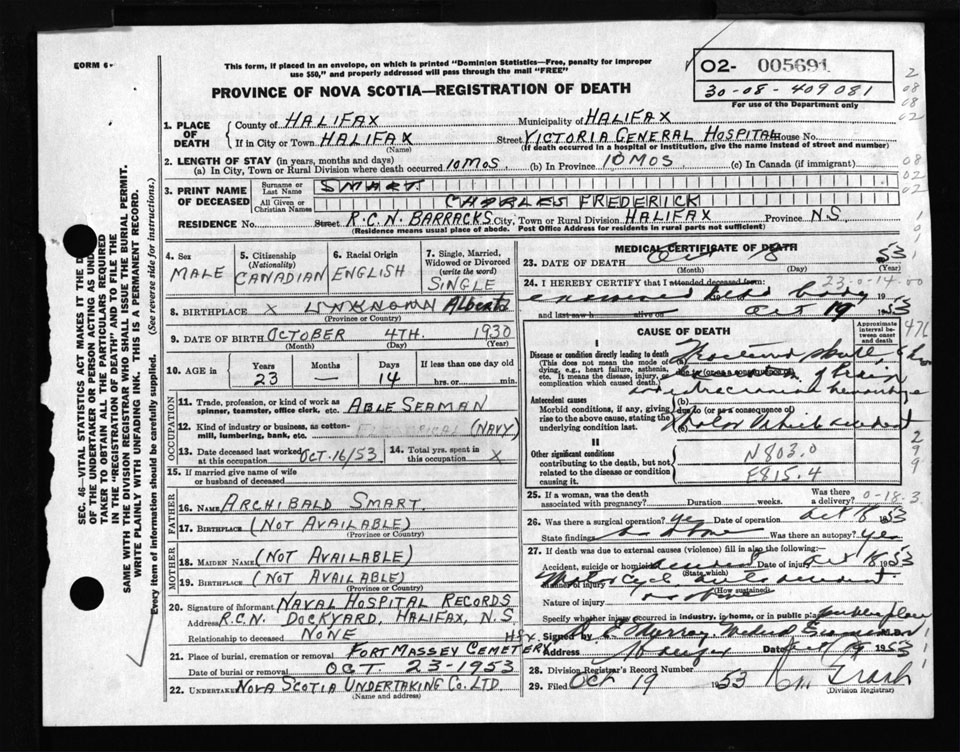 FORM 6
This form, if placed in an envelope, on which is printed "Dominion Statistics—Free, penalty for improper
use $50," and properly addressed will pass through the mail "FREE"
O2- 005691
30-08-409081
For use of the Department only
PROVINCE OF NOVA SCOTIA—REGISTRATION OF DEATH
1. PLACE OF DEATH
County of HALIFAX Municipality of HALIFAX
If in City or Town HALIFAX Street VICTORIA GENERAL HOSPITAL House No.
(Name) (If death occurred in a hospital or institution, give the name instead of street and number)
2. LENGTH OF STAY (in years, months and days)
(a) In City, Town or Rural Division where death occurred 10 MOS. (b) In Province 10 MOS (c) In Canada (if immigrant)
3. PRINT NAME OF DECEASED
Surname or Last Name SMART
All Given or Christian Names CHARLES FREDERICK
RESIDENCE No. Street R.C.N. BARRACKS City, Town or Rural Division HALIFAX Province N.S.
(Residence means usual place of abode. Post Office Address for residents in rural parts not sufficient)
4. Sex MALE
5. Citizenship (Nationality) CANADIAN
6. Racial Origin ENGLISH
7. Single, Married, Widowed or Divorced (write the word) SINGLE
8. BIRTHPLACE X UNKNOWN Alberta
(Province or Country)
9. DATE OF BIRTH OCTOBER 4TH. 1930
(Month) (Day) (Year)
10. AGE IN Years 23 Months — Days 14 If less than one day
hrs. or min.
OCCUPATION
11. Trade, profession, or kind of work as spinner, teamster, office clerk, etc. ABLE SEAMAN
12. Kind of industry or business, as cotton-mill, lumbering, bank, etc. (NAVY)
13. Date deceased last worked at this occupation OCT. 16/53
14. Total yrs. spent in this occupation X
15. If married give name of wife or husband of deceased
FATHER
16. Name ARCHIBALD SMART.
17. Birthplace (NOT AVAILABLE)
(Province or Country)
MOTHER
18. Maiden Name (NOT AVAILABLE)
19. Birthplace (NOT AVAILABLE)
(Province or Country)
20. Signature of informant NAVAL HOSPITAL RECORDS
Address R.C.N. DOCKYARD, HALIFAX, N.S.
Relationship to deceased NONE
21. Place of burial, cremation or removal FORT MASSEY CEMETERY HFX
Date of burial or removal OCT. 23-1953
22. Undertaker NOVA SCOTIA UNDERTAKING CO. LTD.
(Name and address)
MEDICAL CERTIFICATE OF DEATH
23. DATE OF DEATH Oct 18 53
(Month) (Day) (Year)
24. I HEREBY CERTIFY that I attended deceased from:
examined his body 19
and last saw h alive on Oct 19 1953
CAUSE OF DEATH
Approximate interval between onset and death
I
Disease or condition directly leading to death
(This does not mean the mode of dying, e.g., heart failure, asthenia, etc. It means the disease, injury, or complication which caused death.
due to (or as a consequence of)
Antecedent causes
Morbid conditions, if any, giving rise to the above cause, stating the underlying condition last.
(b)
due to (or as a consequence of)
(c) Motor Vehicle accident
II
Other significant conditions
contributing to the death, but not related to the disease or condition causing it.
N803.0
E815.4
25. If a woman, was the death associated with pregnancy? Duration weeks. Was there a delivery? 0-18.3
26. Was there a surgical operation? yes Date of operation Oct 18 1953
State findings as above Was there an autopsy? yes
27. If death was due to external causes (violence) fill in also the following:—
Accident, suicide or homicide accident Date of injury Oct 18 1953
(State which)
Manner of injury Motorcycle auto accident.
(How sustained)
Nature of injury as above
Specify whether injury occurred in industry, in home, or in public place public place
Signed by D. E. Murray Medical Examiner
Address Halifax Date Oct 19 1953
28. Division Registrar's Record Number
29. Filed Oct 19 1953
(Division Registrar)
SEC. 46—VITAL STATISTICS ACT MAKES IT THE
OF THE UNDERTAKER OR PERSON ACTING AS UND
TAKER TO OBTAIN ALL THE PARTICULARS REQUIRED
IN THE "REGISTRATION OF DEATH" AND TO FILE THE
SAME WITH THE DIVISION REGISTRAR WHO SHALL ISSUE THE BURIAL PERMIT.
WRITE PLAINLY WITH UNFADING INK. THIS IS A PERMANENT RECORD.
Every item of information should be carefully supplied. (See reverse side for instructions.)